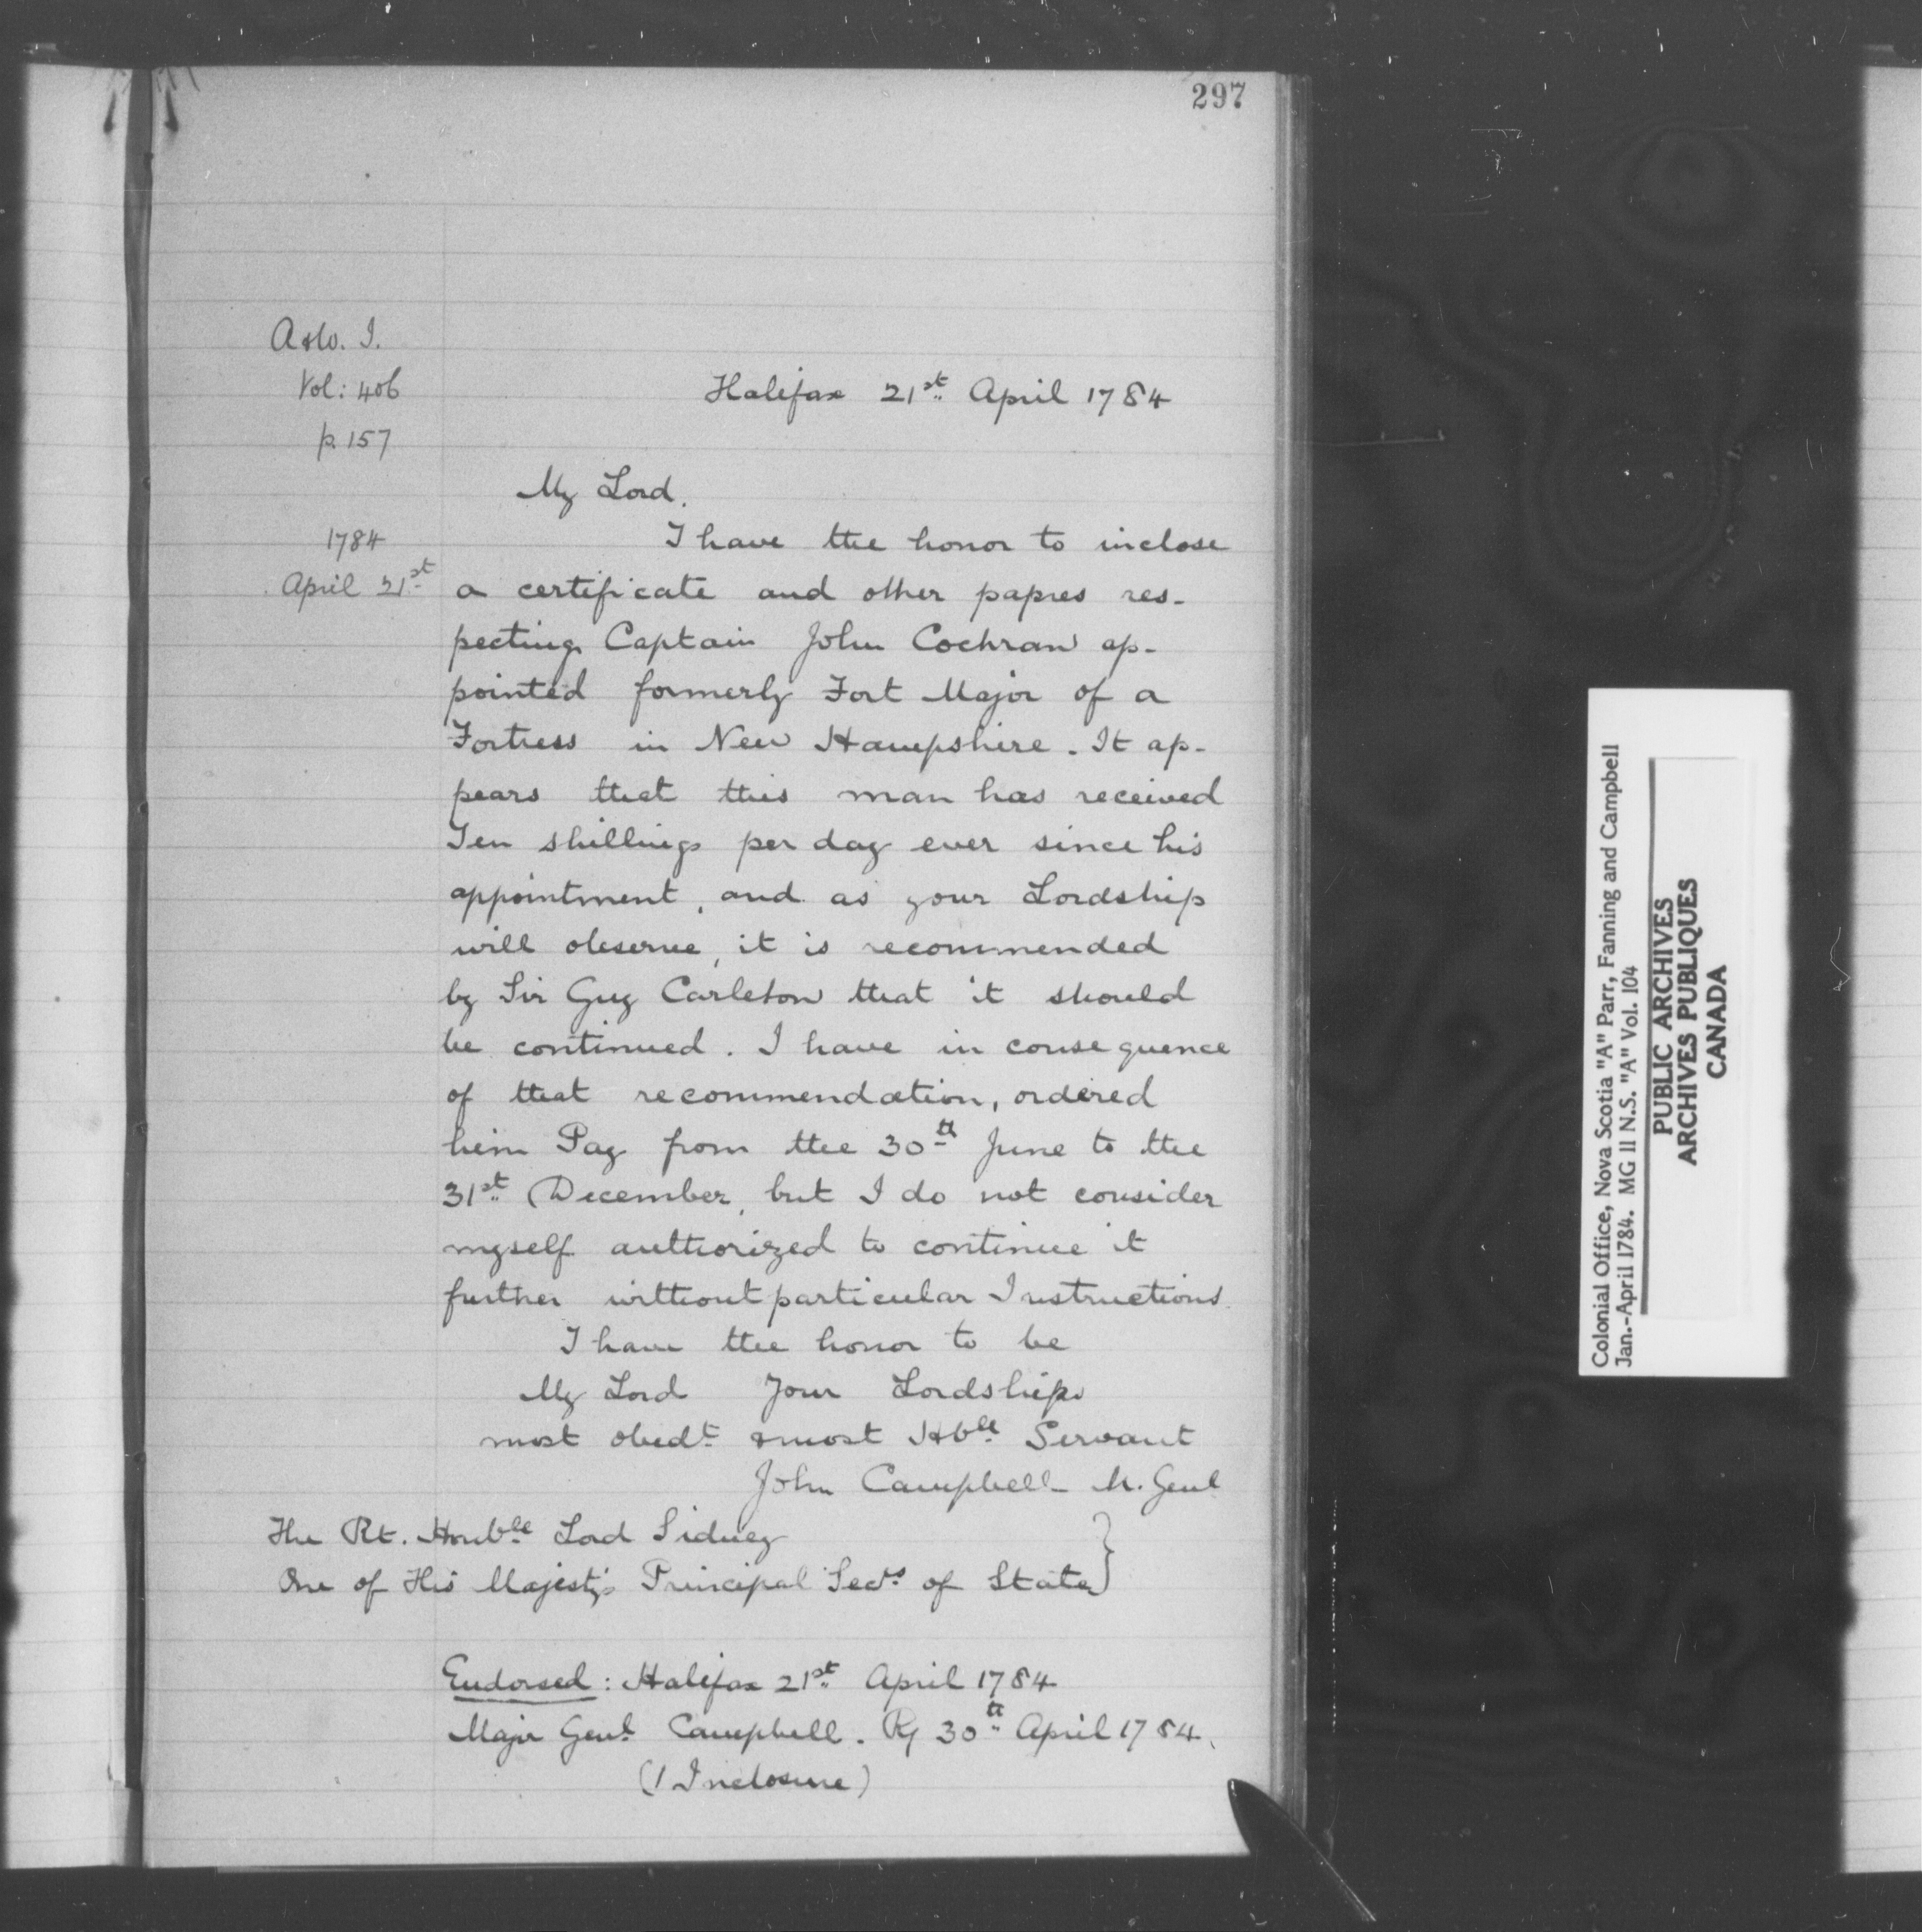 297
A & W. I.
Vol: 406
p. 157
Halifax 21st April 1784
My Lord.
1784
April 21st
I have the honor to inclose
a certificate and other papres res-
pecting Captain John Cochran ap-
pointed formerly Fort Major of a
Fortress in New Hampshire. It ap-
pears that this man has received
Ten shillings per day ever since his
appointment, and as your Lordship
will observe, it is recommended
by Sir Guy Carleton that it should
be continued. I have in consequence
of that recommendation, ordered
him Pay from the 30th June to the
31st December, but I do not consider
myself authorized to continue it
further without particular Instructions.
I have the honor to be
My Lord Your Lordships
most obedt & most Hble Servant
John Campbell M. Genl
The Rt. Honble Lord Sidney
One of His Majesty's Principal Secrs of State}
Endorsed: Halifax 21st April 1784
Major Genl Campbell. R/ 30th April 1784.
(1 Inclosure)
Colonial Office, Nova Scotia "A" Parr, Fanning and Campbell
Jan.-April 1784. MG 11 N.S. "A" Vol. 104
PUBLIC ARCHIVES
ARCHIVES PUBLIQUES
CANADA